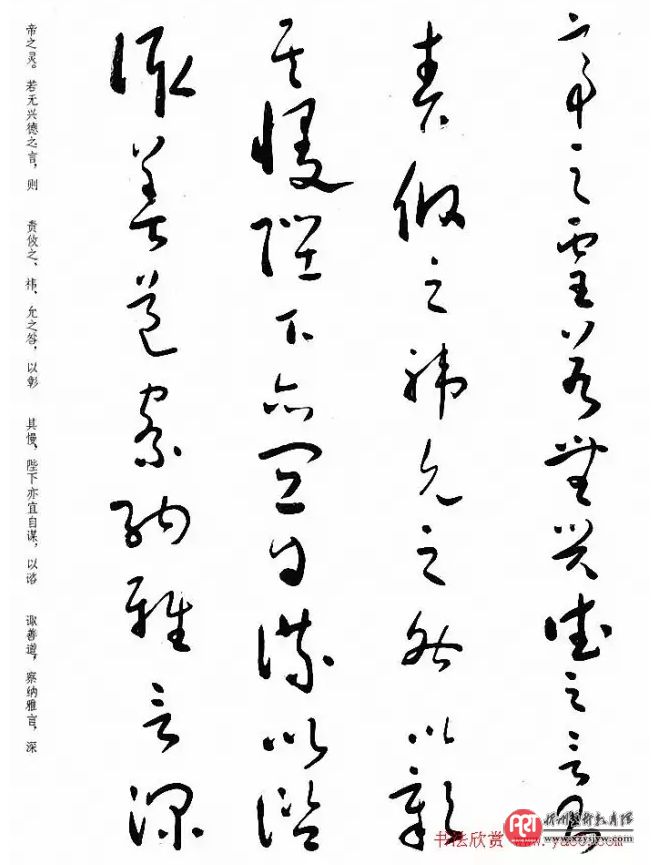 帝之灵若无兴德之言则
责攸之祎允之咎以彰
其慢陛下亦宜自谋以谘
诹善道察纳雅言深
帝之灵。若无兴德之言，则
责攸之、祎、允之咎，以彰
其慢，陛下亦宜自谋，以谘
诹善道，察纳雅言，深
书法欣赏 www.yac